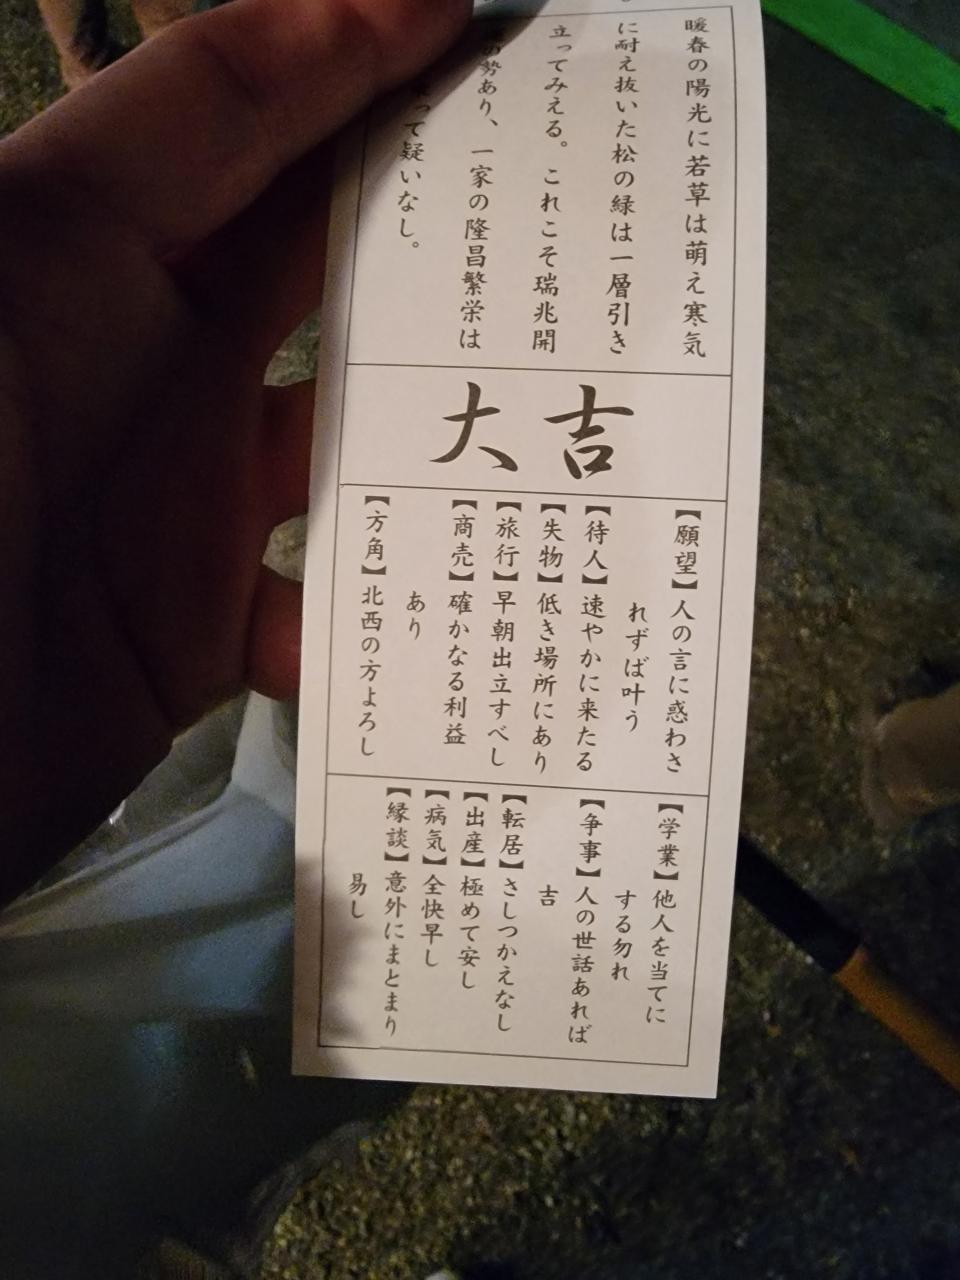 暖春の陽光に若草は萌え寒気
に耐え抜いた松の緑は一層引き
立ってみえる。これこそ瑞兆開
の勢あり、一家の隆昌繁栄は
って疑いなし。
大吉
【願望】人の言に惑わさ
れずば叶う
【待人】速やかに来たる
【失物】低き場所にあり
【旅行】早朝出立すべし
【商売】確かなる利益
あり
【方角】北西の方よろし
【学業】他人を当てに
する勿れ
【争事】人の世話あれば
吉
【転居】さしつかえなし
【出産】極めて安し
【病気】全快早し
【縁談】意外にまとまり
易し